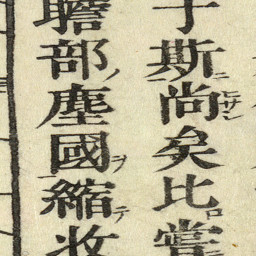 于斯尚矣比嘗
瞻部塵國縮收